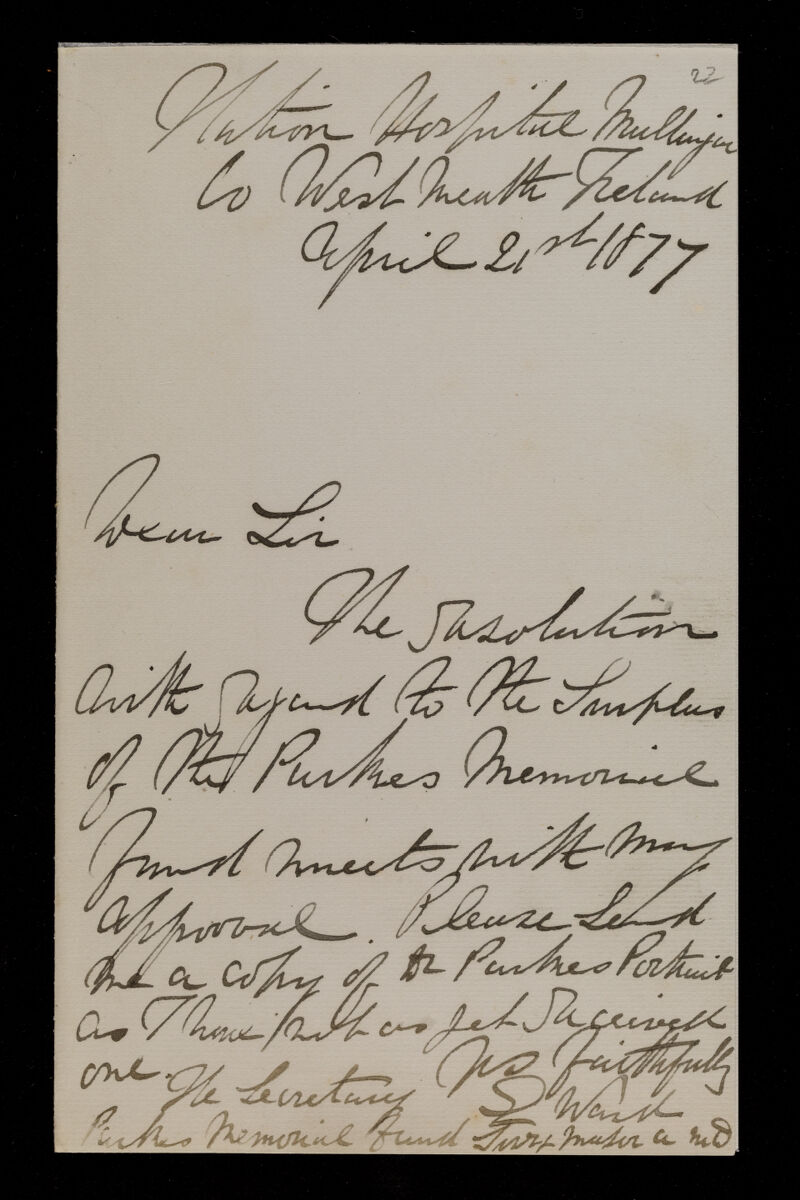 22
Station Hospital Mullingar
Co West Meath Ireland
April 21st 1877
Dear Sir
The resolution
with regard to the Surplus
of the Parkes Memorial
Fund meets with my
approval. Please send
me a copy of Dr Parkes Portrait
as I have not as yet received
one.
Yrs faithfully
The Secretary
S Ward
Parkes Memorial Fund
Major A M D